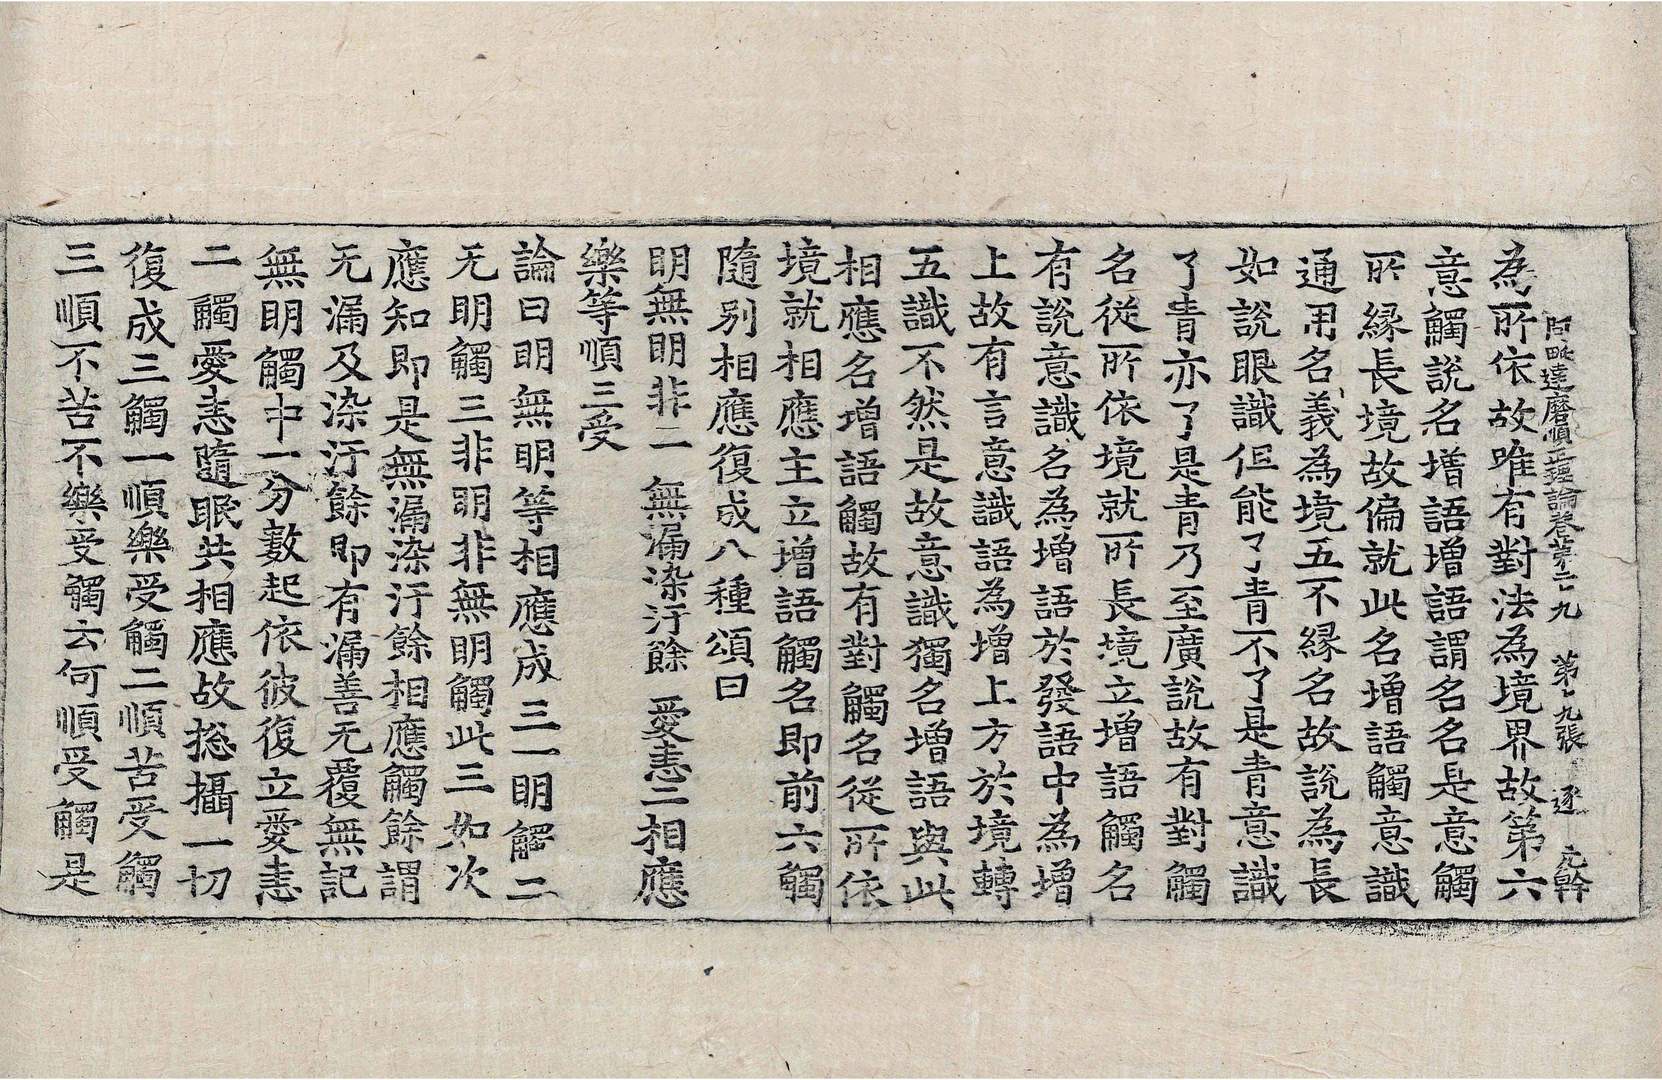 阿毗達磨順正理論卷第二九 第十九張 逐 元幹
為所依故唯有對法為境界故第六
意觸說名增語增語謂名名是意觸
所緣長境故偏就此名增語觸意識
通用名義為境五不緣名故說為長
如說眼識但能了青不了是青意識
了青亦了是青乃至廣說故有對觸
名從所依境就所長境立增語觸名
有說意識名為增語於發語中為增
上故有言意識語為增上方於境轉
五識不然是故意識獨名增語與此
相應名增語觸故有對觸名從所依
境就相應主立增語觸名即前六觸
隨別相應復成八種頌曰
明無明非二 無漏染汙餘 愛恚二相應
樂等順三受
論曰明無明等相應成三一明觸二
无明觸三非明非無明觸此三如次
應知即是無漏染汙餘相應觸餘謂
无漏及染汙餘即有漏善无覆無記
無明觸中一分數起依彼復立愛恚
二觸愛恚隨眠共相應故揔攝一切
復成三觸一順樂受觸二順苦受觸
三順不苦不樂受觸云何順受觸是